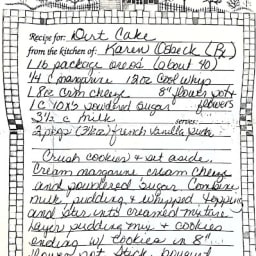 Recipe for: Dirt Cake
from the kitchen of: Karen
1 lb package oreos (about 40)
1/4 c margarine 12 oz Cool Whip
1 8oz crm cheeze 8" flower pot +
1 c 10X's powdered sugar flowers
3 1/2 c milk serves:
2 pkgs french vanilla
Crush cookies & set aside.
Cream margarine cream cheeze
and powdered sugar. Combine
milk, pudding & whipped topping
and stir into creamed mixture
layer pudding mix & cookies
ending w/ cookies in 8"
flower pot. Stick bouquet